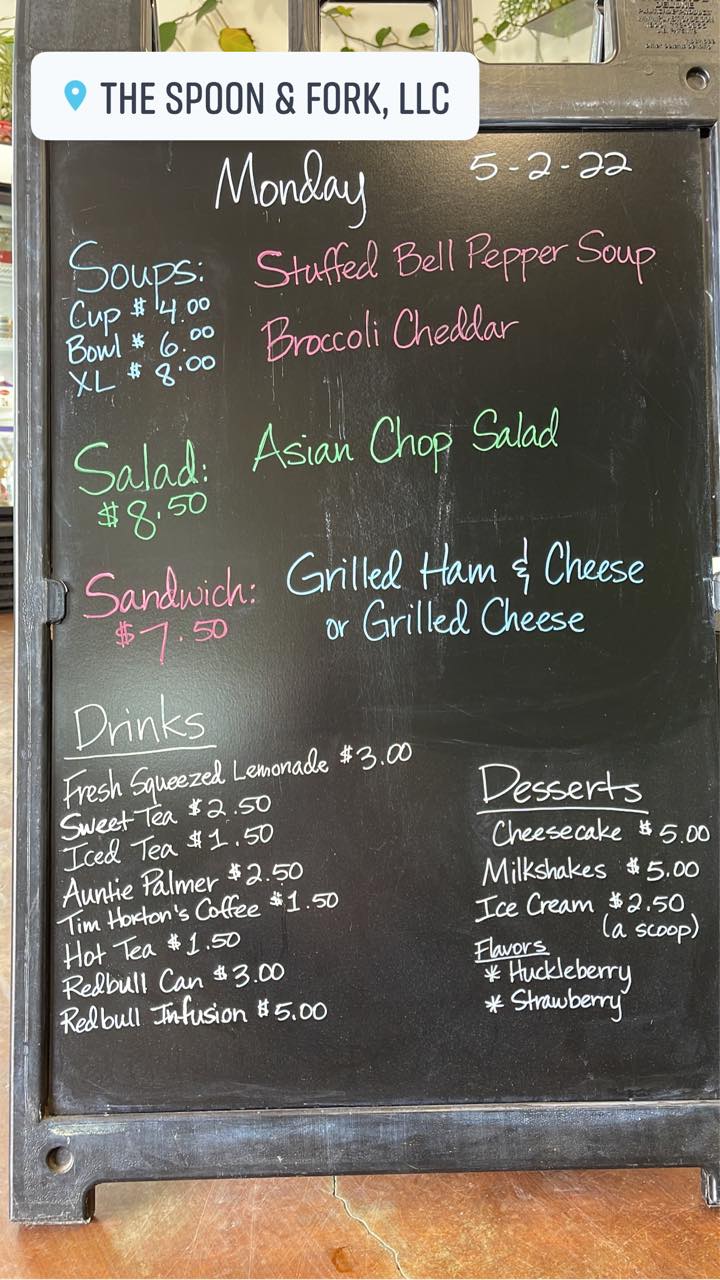 THE SPOON & FORK, LLC
Monday 5-2-22
Soups: Stuffed Bell Pepper Soup
Cup $4.00
Bowl $6.00 Broccoli Cheddar
XL $8.00
Salad: Asian Chop Salad
$8.50
Sandwich: Grilled Ham & Cheese
$7.50 or Grilled Cheese
Drinks
Fresh Squeezed Lemonade $3.00
Sweet Tea $2.50
Iced Tea $1.50
Auntie Palmer $2.50
Tim Horton's Coffee $1.50
Hot Tea $1.50
Redbull Can $3.00
Redbull Infusion $5.00
Desserts
Cheesecake $5.00
Milkshakes $5.00
Ice Cream $2.50
(a scoop)
Flavors
* Huckleberry
* Strawberry